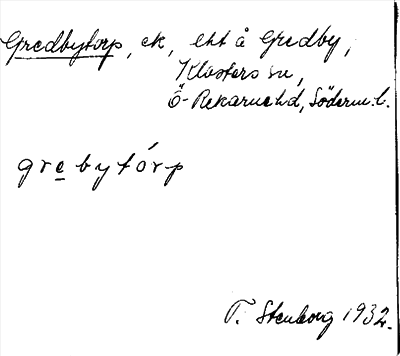 Gredbytorp, ek, ett å Gredby,
Klosters sn,
Ö-Rekarne hd, Söderm. l.
grebytórp
T. Stenborg 1932.